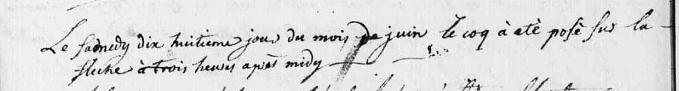 Le samedy dix huitieme jour du mois de juin le coq à eté posé sur la
fleche à trois heures apres midy